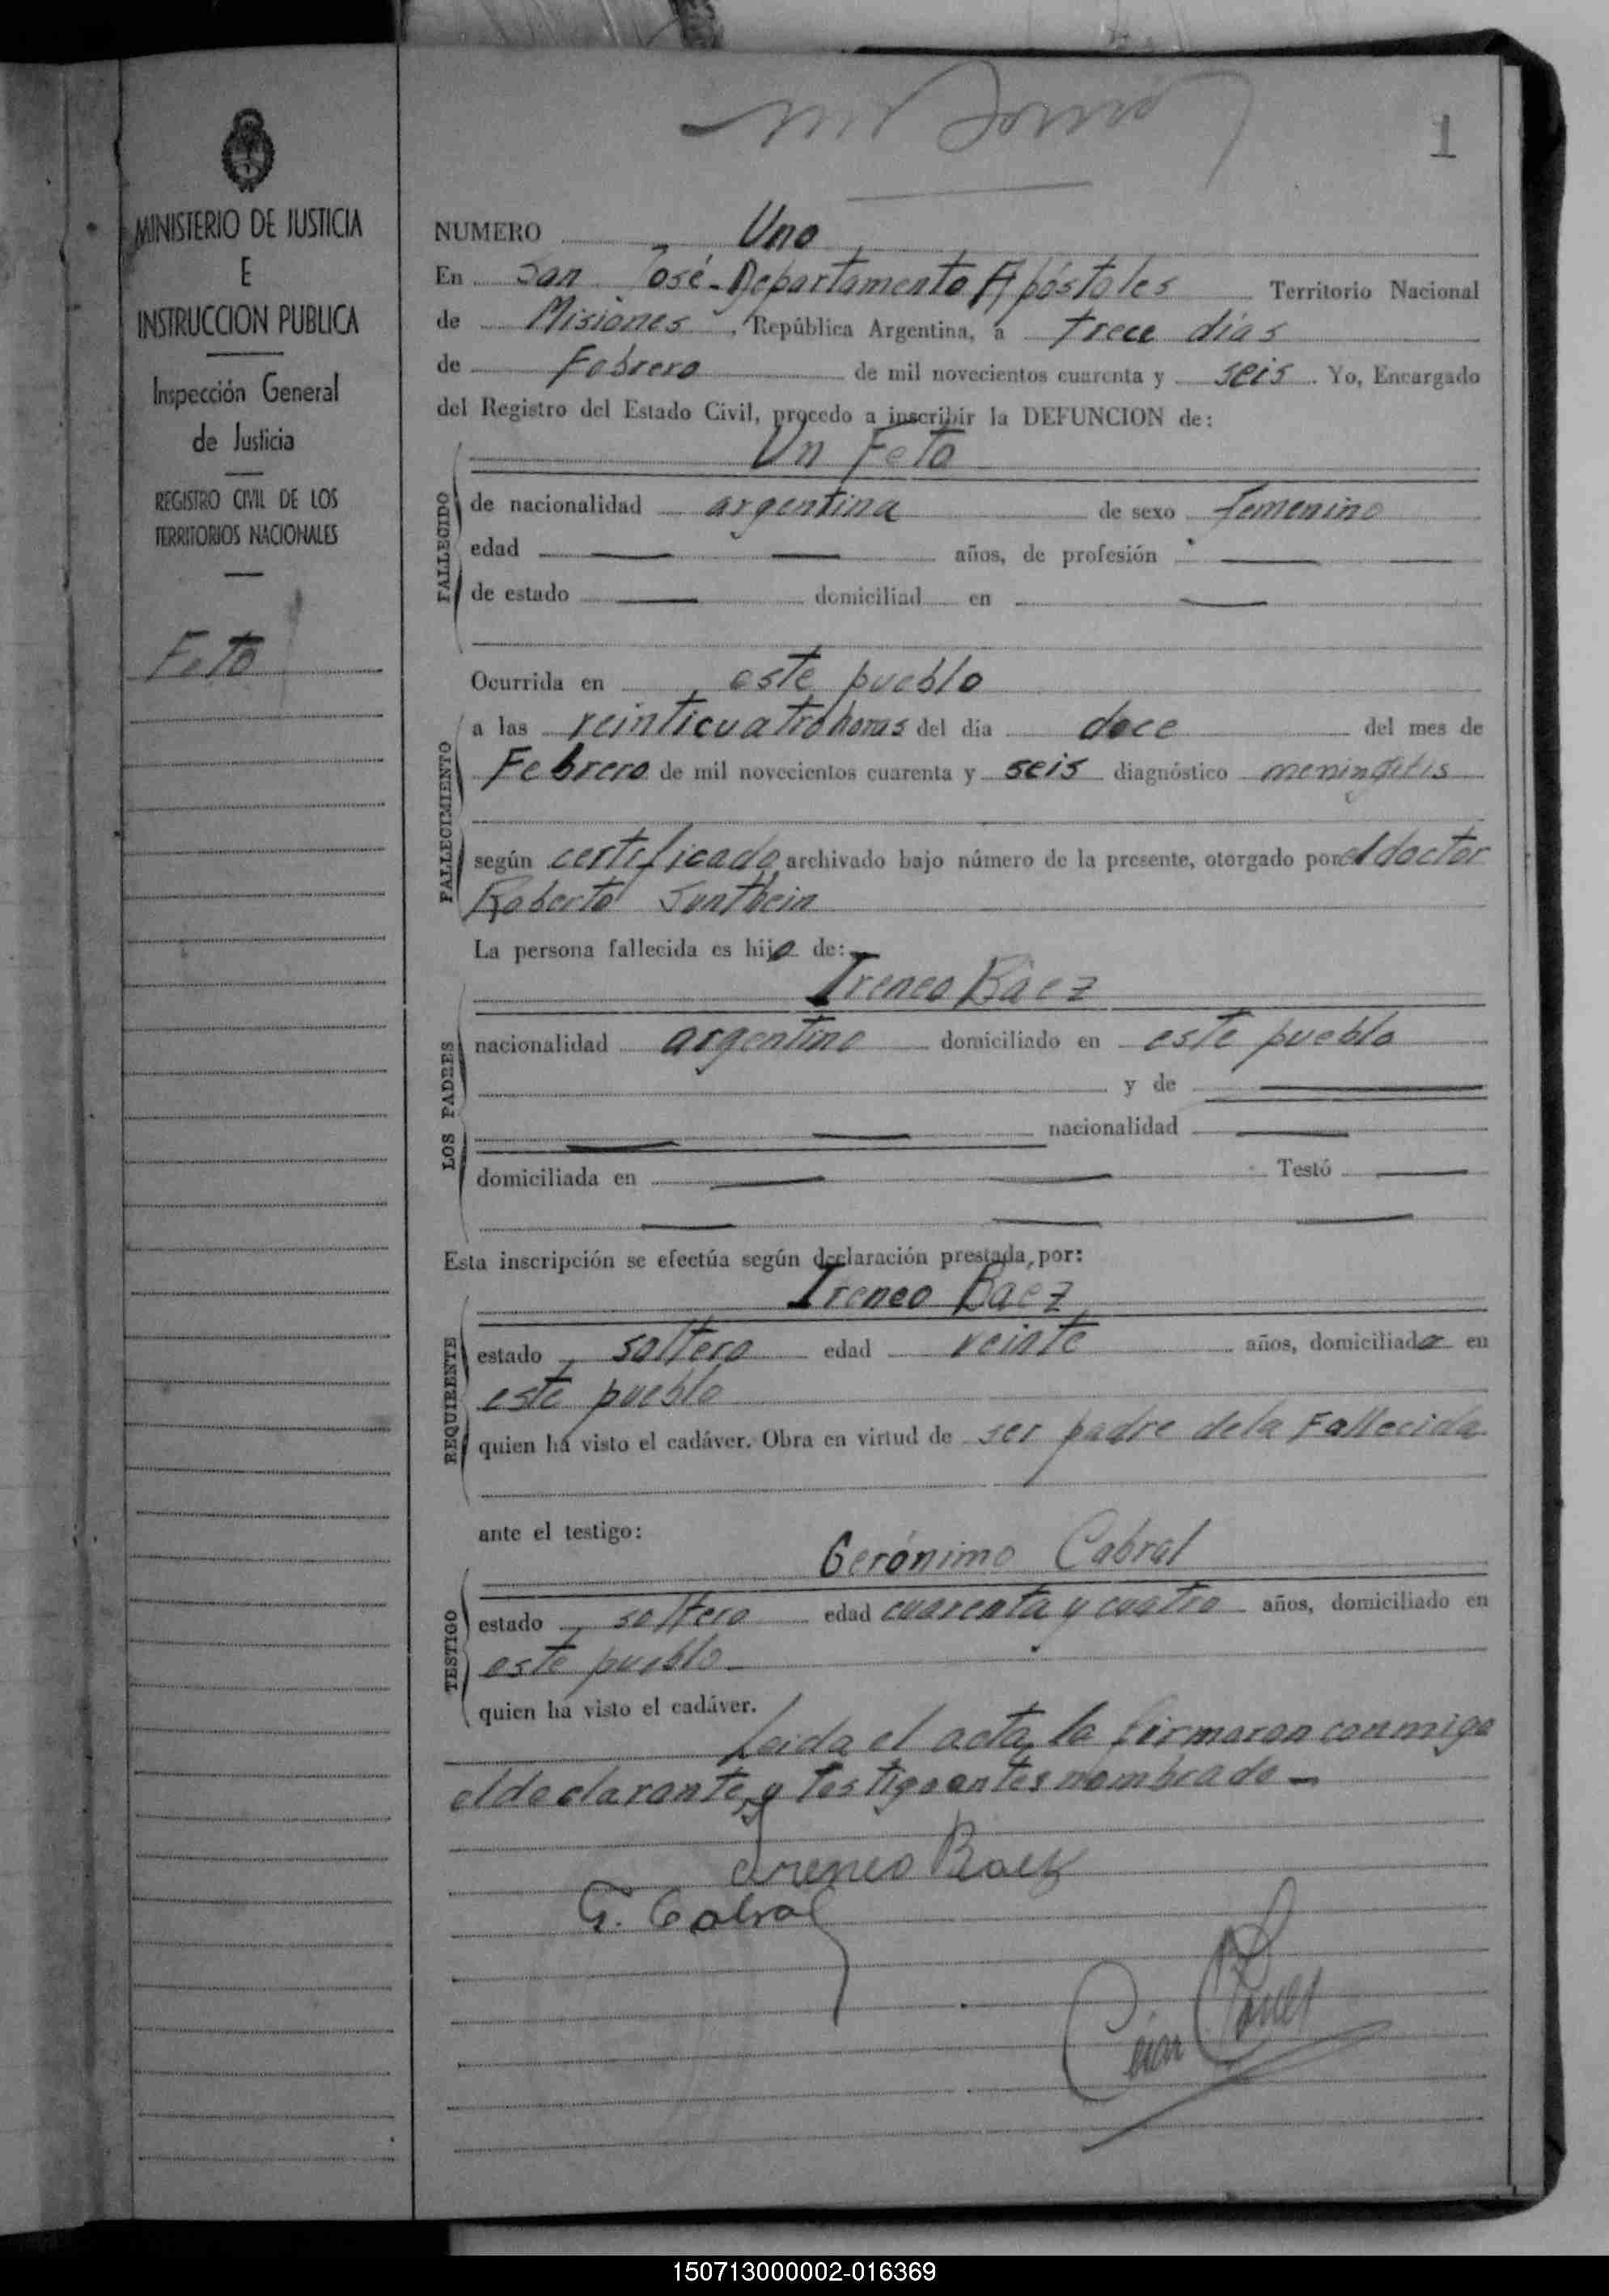 1
MINISTERIO DE JUSTICIA
E
INSTRUCCION PUBLICA
Inspección General
de Justicia
REGISTRO CIVIL DE LOS
TERRITORIOS NACIONALES
Feto
NUMERO Uno
En San José - Departamento Apóstoles Territorio Nacional
de Misiones, República Argentina, a trece dias
de Febrero de mil novecientos cuarenta y seis. Yo, Encargado
del Registro del Estado Civil, procedo a inscribir la DEFUNCION de:
Un Feto
FALLECIDO
de nacionalidad argentina de sexo femenino
edad — — años, de profesión — —
de estado — domiciliad en —
Ocurrida en este pueblo
FALLECIMIENTO
a las veinticuatro horas del dia doce del mes de
Febrero de mil novecientos cuarenta y seis diagnóstico meningitis
según certificado archivado bajo número de la presente, otorgado por el doctor
Roberto
La persona fallecida es hija de:
Ireneo Báez
LOS PADRES
nacionalidad argentino domiciliado en este pueblo
y de —
— — nacionalidad —
domiciliada en — — Testó —
— — —
Esta inscripción se efectúa según declaración prestada, por:
Ireneo Baez
REQUIRENTE
estado soltero edad veinte años, domiciliado en
este pueblo
quien há visto el cadáver. Obra en virtud de ser padre dela Fallecida
ante el testigo:
Gerónimo Cabral
TESTIGO
estado soltero edad cuarenta y cuatro años, domiciliado en
este pueblo
quien há visto el cadáver.
Leida el acta, la firmaron conmigo
el declarante y testigo antes nombrado —
Ireneo Baez
G. Cabral
150713000002-016369